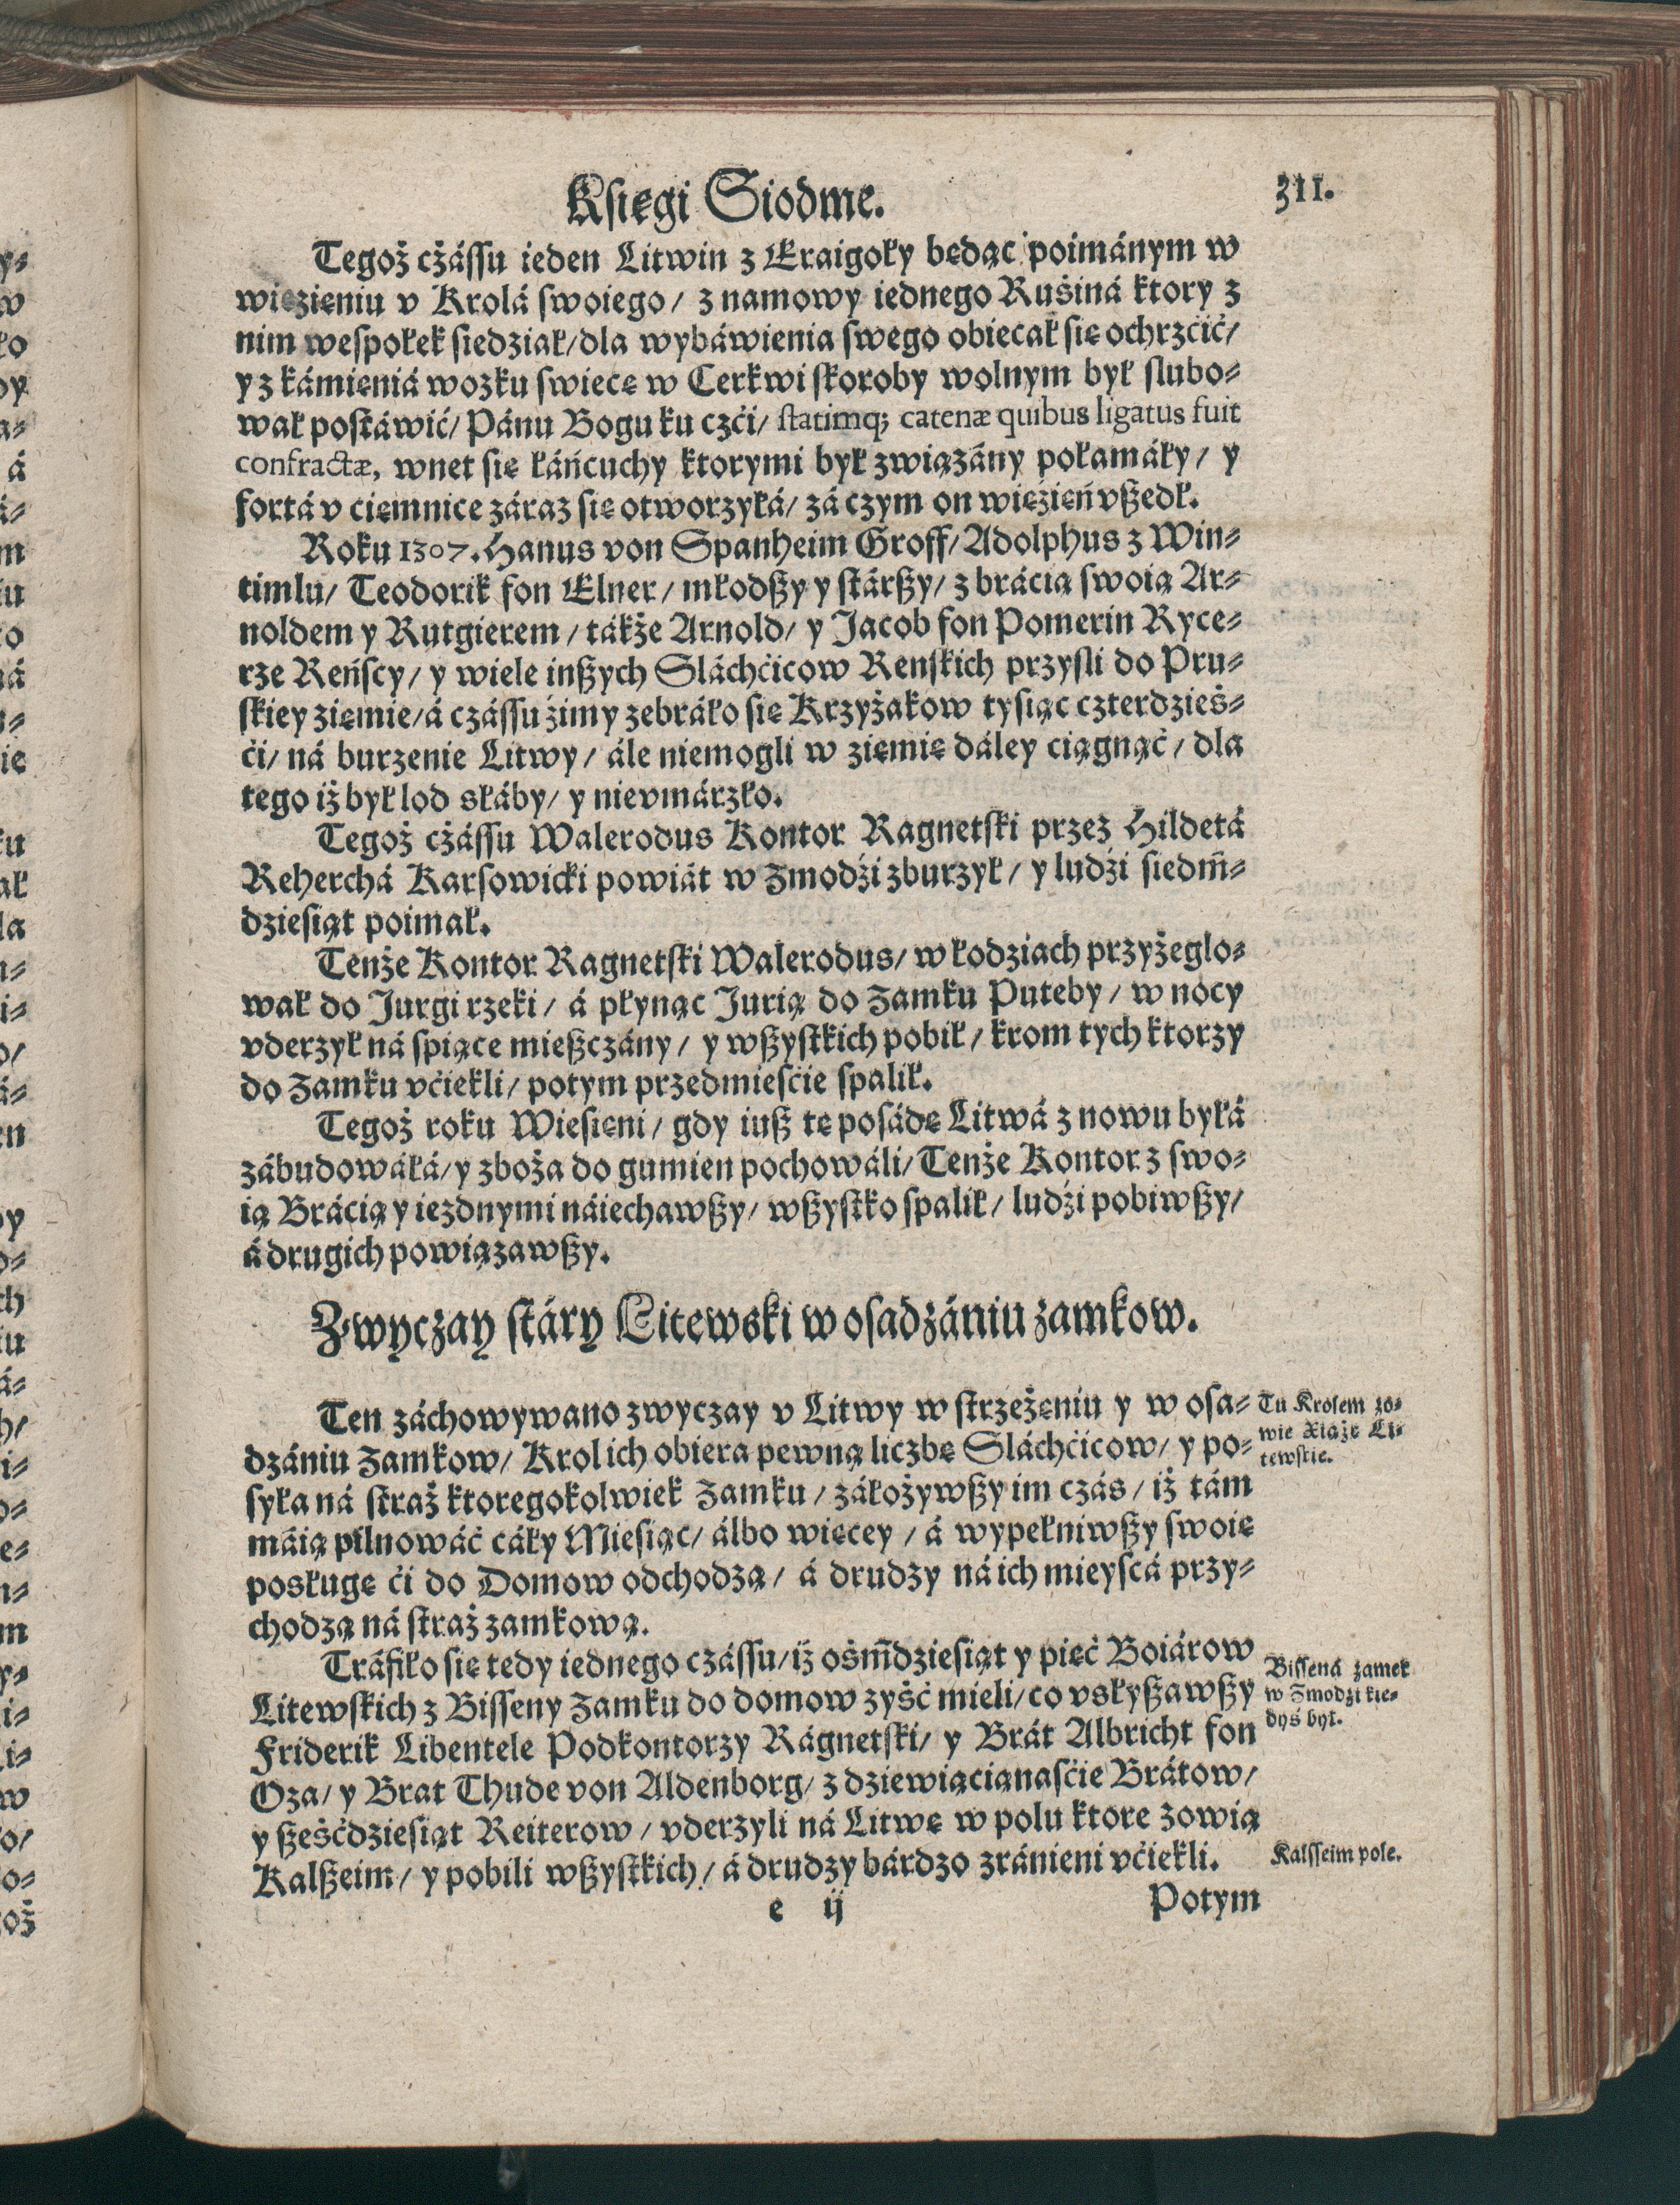 Kſięgi Siodme.
311.
Tegoż cżáſſu ieden Litwin z Eraigoły będąc poimánym w
więzieniu v Krolá swoiego / z namowy iednego Ruśiná ktory z
nim weſpołek siedział / dla wybáwienia swego obiecał się ochrzćić /
y z kámieniá wozku swiecę w Cerkwi ſkoroby wolnym był slubo⸗
wał poſtáwić / Pánu Bogu ku czći / ſtatimq; catenæ quibus ligatus fuit
confractæ, wnet się łáńcuchy ktorymi był związány połamáły / y
fortá v ciemnice záraz się otworzyłá / zá czym on więźień vßedł.
Roku 1307. Hanus von Spanheim Groff / Adolphus z Win⸗
timlu / Teodorik fon Elner / młodßy y ſtárßy / z brácią swoią Ar⸗
noldem y Rutgierem / tákże Arnold / y Jacob fon Pomerin Ryce⸗
rze Reńscy / y wiele inßych Sláchćicow Renſkich przyſli do Pru⸗
ſkiey ziemie / á czáſſu źimy zebráło się Krzyżakow tysiąc czterdzieś⸗
ći / ná burzenie Litwy / ále niemogli w ziemię dáley ciągnąć / dla
tego iż był lod słáby / y nievmárzło.
Tegoż cżáſſu Walerodus Kontor Ragnetſki przez Hildetá
Reherchá Karsowicki powiát w Zmodźi zburzył / y ludźi siedm̄⸗
dziesiąt poimał.
Tenże Kontor Ragnetſki Walerodus / w łodziach przyżeglo⸗
wał do Jurgi rzeki / á płynąc Jurią do Zamku Puteby / w nocy
vderzył ná ſpiące mießczány / y wßyſtkich pobił / krom tych ktorzy
do Zamku vćiekli / potym przedmieſćie ſpalił.
Tegoż roku Wiesieni / gdy iuß tę posádę Litwá z nowu byłá
zábudowáłá / y zboża do gumien pochowáli / Tenże Kontor z swo⸗
ią Brácią y iezdnymi náiechawßy / wßyſtko ſpalił / ludźi pobiwßy /
á drugich powiązawßy.
Zwyczay ſtáry Litewſki w oſadzániu zamkow.
Ten záchowywano zwyczay v Litwy w ſtrzeżeniu y w osa⸗
dzániu Zamkow / Krol ich obiera pewną liczbę Sláchćicow / y po⸗
syła ná ſtraż ktoregokolwiek Zamku / záłożywßy im czás / iż tám
máią pilnowáć cáły Miesiąc / álbo więcey / á wypełniwßy swoię
posługę ći do Domow odchodzą / á drudzy ná ich mieyſcá przy⸗
chodzą ná ſtraż zamkową.
Tu Krolem zo⸗
wie Xiążę Li⸗
tewſkie.
Tráfiło się tedy iednego czáſſu / iż ośm̄dziesiąt y pięć Boiárow
Litewſkich z Biſſeny Zamku do domow zyść mieli / co vsłyßawßy
Friderik Libentele Podkontorzy Rágnetſki / y Brát Albricht fon
Oza / y Brat Thude von Aldenborg / z dziewiąciąnaſćie Brátow /
y ßeśćdziesiąt Reiterow / vderzyli ná Litwę w polu ktore zowią
Kalßeim / y pobili wßyſtkich / á drudzy bárdzo zránieni vćiekli.
Biſſená zamek
w Zmodźi kie⸗
dyś był.
Kalſſeim pole.
e ij
Potym